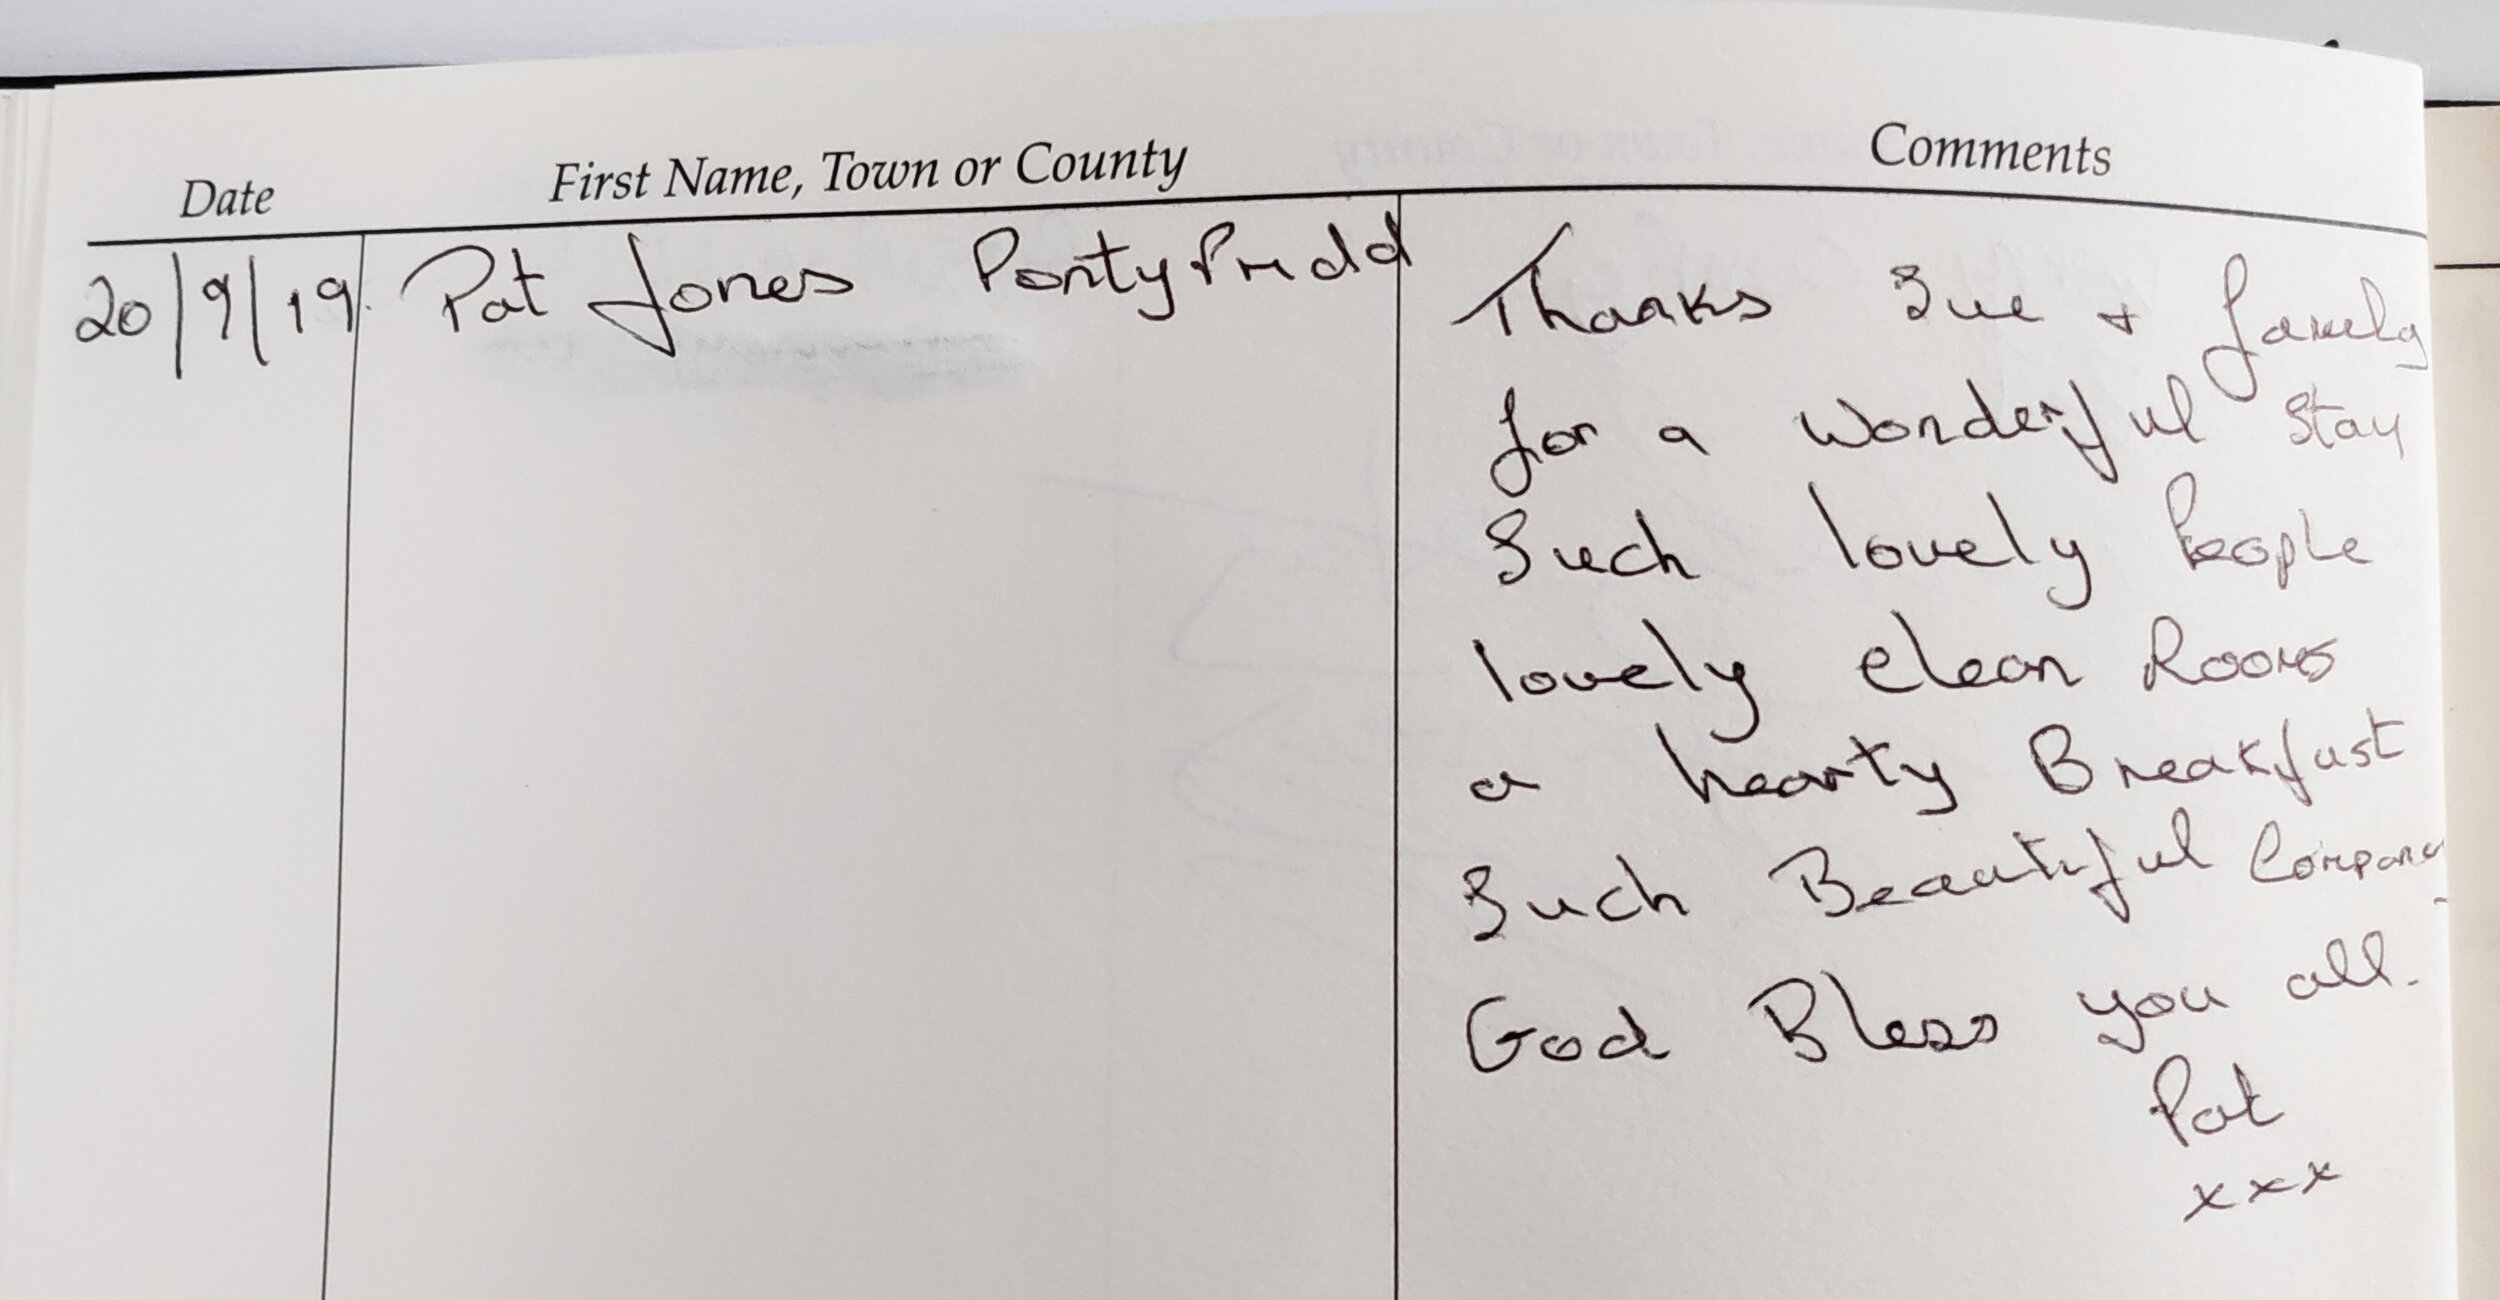 Date First Name, Town or County Comments
20/9/19. Pat Jones PontyPridd
Thanks Sue + family
for a wonderful stay
Such lovely People
lovely clean Rooms
a hearty Breakfast
Such Beautiful Company
God Bless you all.
Pat
xxx